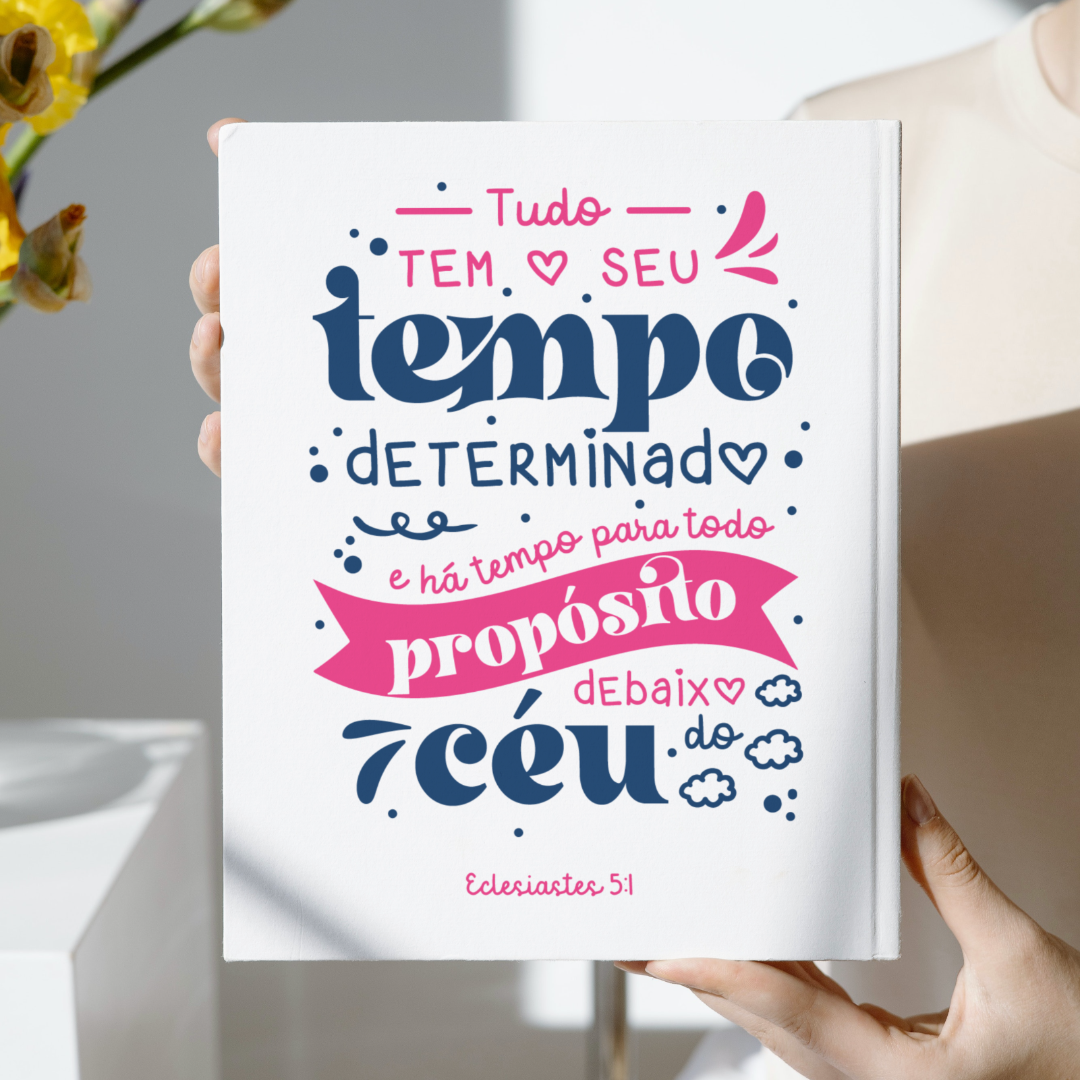 Tudo
TEM SEU
tempo
dETERMiNado
e há tempo para todo
propósito
dEbaixo
do
céu
Eclesiastes 5:1